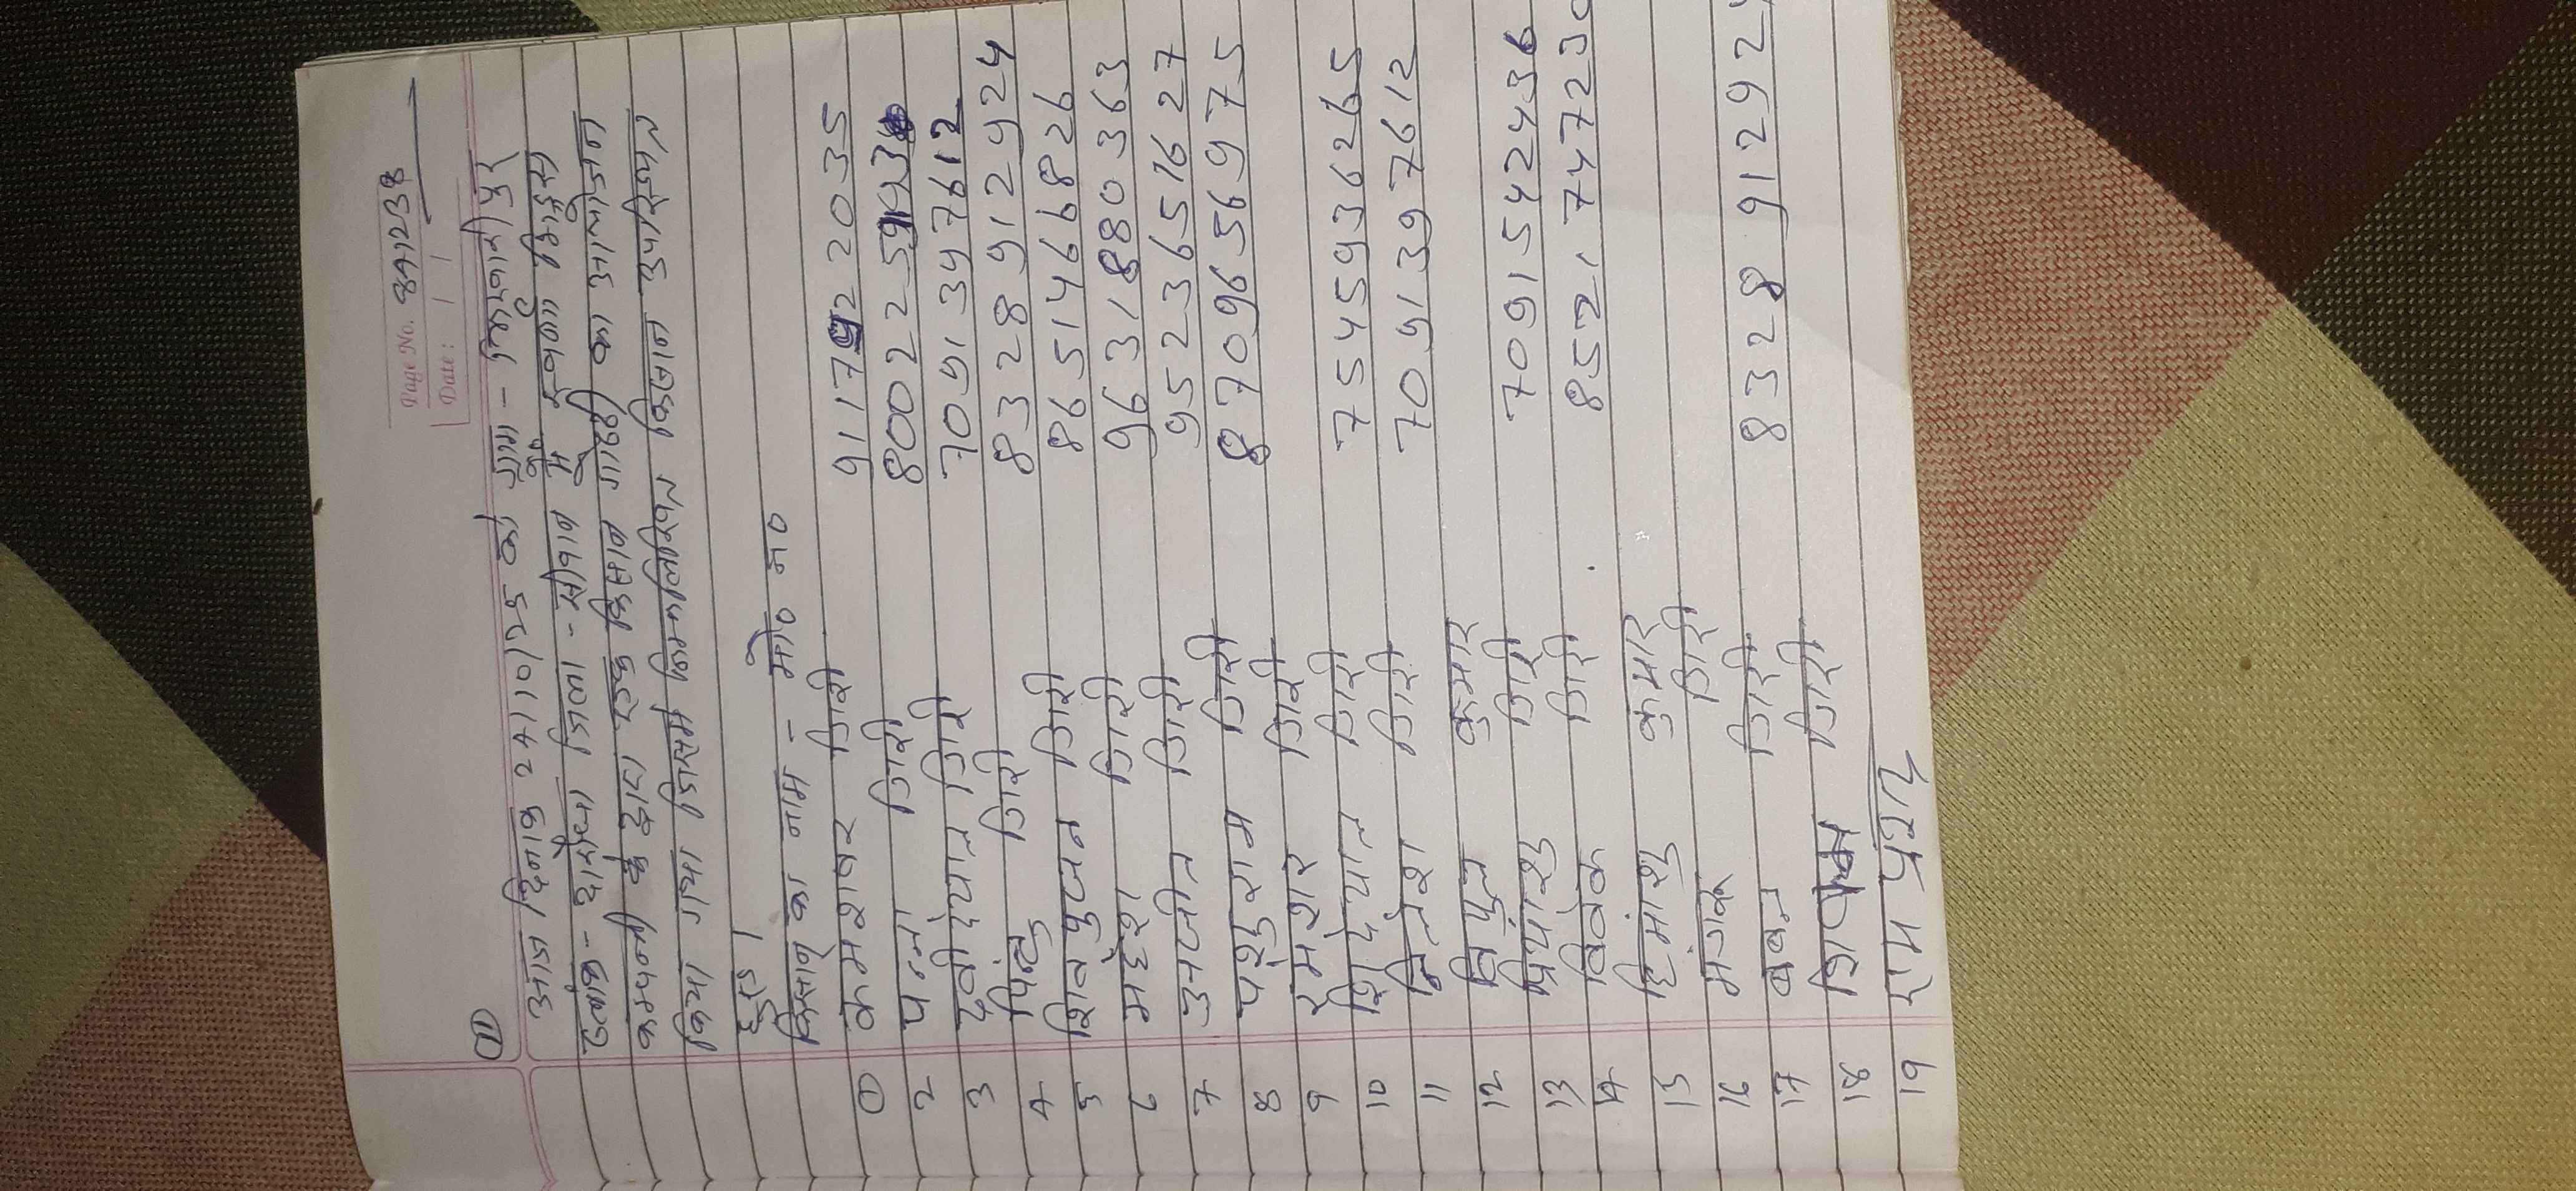 Page No. 841238
Date: / /
①
आज दिनांक 24/10/25 को ग्राम - मिश्रवलिया
जिला - सीवान में सुपर्णा
कम्पनी के द्वारा एक किसान गोष्ठी का आयोजन
किया गया जिसमे निम्नलिखित किसान उपस्थित
हुए।
किसान का नाम - मो० न०
① कमेशवर गिरी 9117922035
2 पन्ना गिरी
3 देवीदयाल गिरी 7091397612
4 पिन्टु गिरी 8328912924
5 शिवपुजन गिरी 8651466826
6 महेश गिरी 9631880363
7 अजीत गिरी 9523651627
8 पशुराम गिरी 8709656975
9 रमेशर गिरी
10 शिदयाल गिरी 7545936265
11 जिनेश गिरी 7091397612
12 विपुल कुमार
13 प्रियांशु गिरी 7091542436
14 विवेक गिरी 8521747230
15 हिमांशु कुमार
16 मंजक गिरी
17 बबन गिरी 8328912924
18 गिरी
19 राम